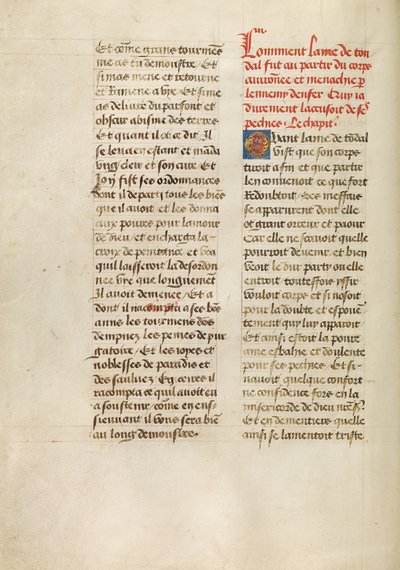 Et co͞me grans tourmens
me as tu demonstre. Et
si mas mene et retourne
et Ramene a vie. Et si me
as deliure du parfont et
obscur abisme des terres.
Et quant il ot ce dit. Il
se leua en estant et manda
vng clerc et son cure. Et
la fist ses ordonnances
dont il departi tous les biẽs
que il auoit. et les donna
aux poures pour lamour
de dieu. et encharga la
croix de penitance et voa
quil laisseroit la desordon
nee vie que longuement
Il auoit demenee. Et a
dont il racompta a ses bõs
amis les tourmens des
dempnez Les peines de pur
gatoire. Et les ioyes et
noblesses de paradis et
des sauluez. Et apres il
racompta ce quil auoit eu
a soustenir. co͞me en ens
sieuuant il vous sera biẽ
au long demonstre.
Comment lame de ton
dal fut au partir du corps
auironnee et menachee p̱
lennemy denfer. Et
durement laccusoit de ses
pechies. Le chapit.
Quant lame de tõdal
vist que son corps
tiroit a fin. et que partir
len conuenoit ce que fort
Redoubtoit. Ses meffais
se apparurent dont elle
ot grant orreur et paour
Car elle ne scauoit quelle
pourroit deuenir. et bien
veoit le dur party ou elle
entroit touteffois yssir
vouloit corps et si nosoit
pour la doubte et espoue͞
tement quy luy apparoit
Et ainsi estoit la poure
ame esbahie et doulente
pour ses pechies. Et si
nauoit quelque confort
ne confidence fors en la
misericorde de dieu
Et en dementiers quelle
ainsi se lamentoit triste